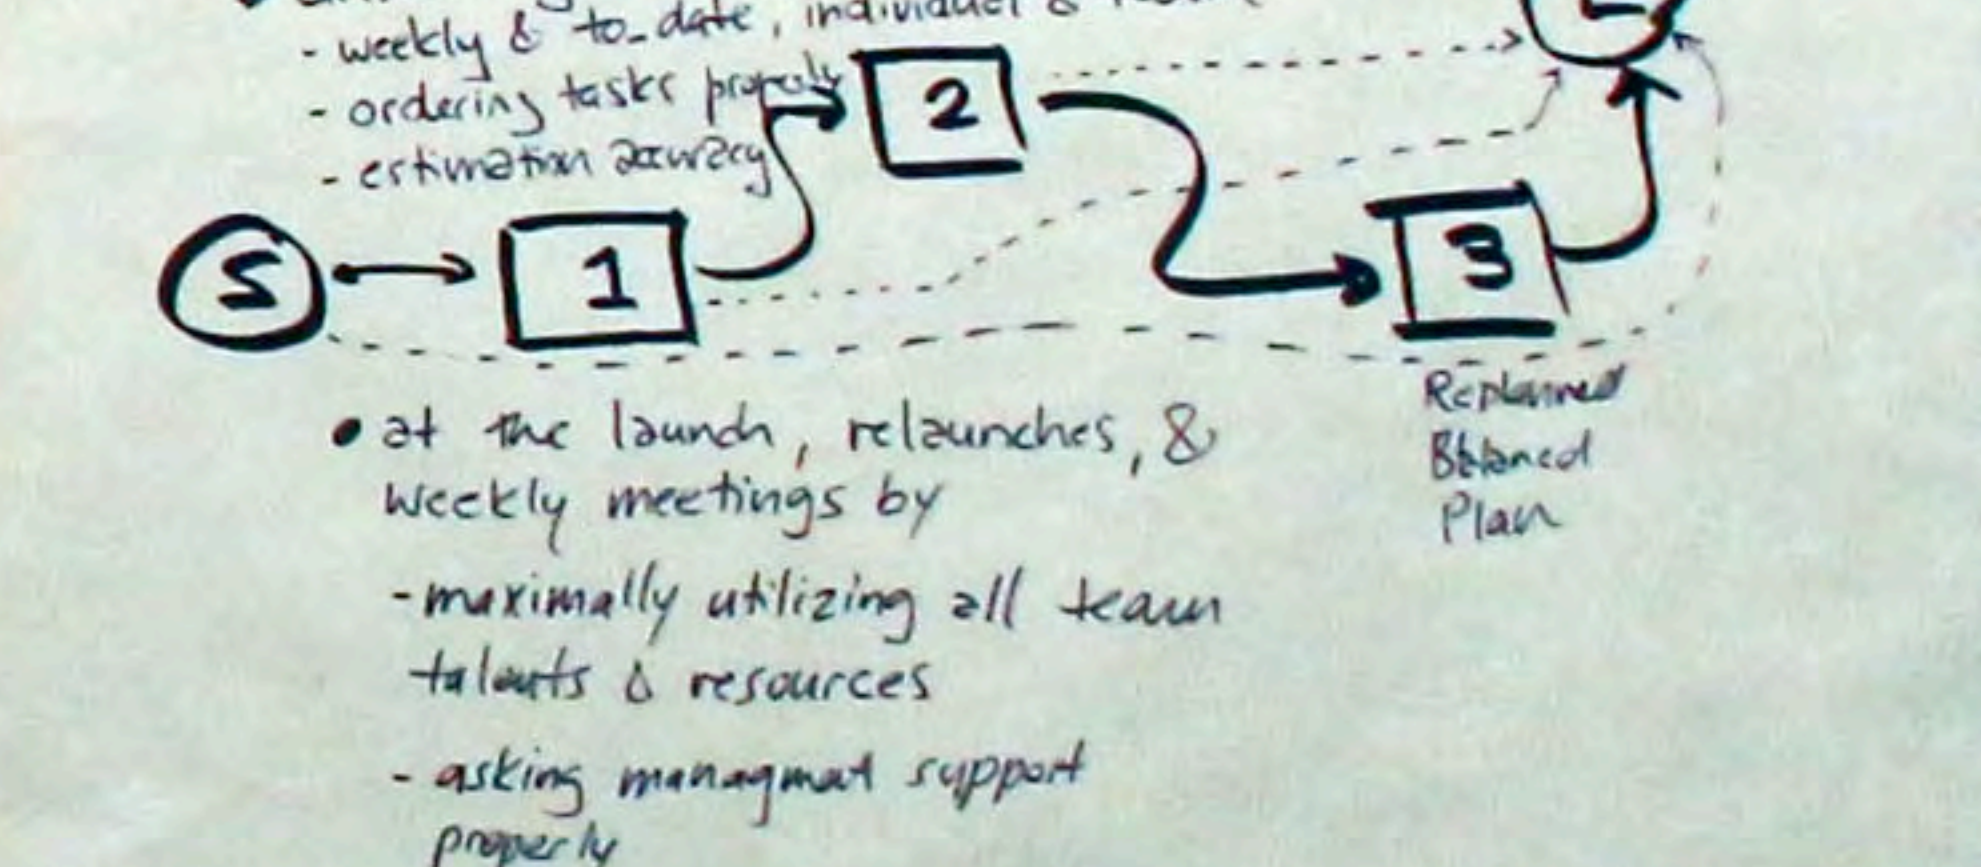 - weekly & to-date, individual &
- ordering tasks properly
- estimation accuracy
2
S
1
3
Replanned
Balanced
Plan
• at the launch, relaunches, &
weekly meetings by
- maximally utilizing all team
talents & resources
- asking managment support
properly